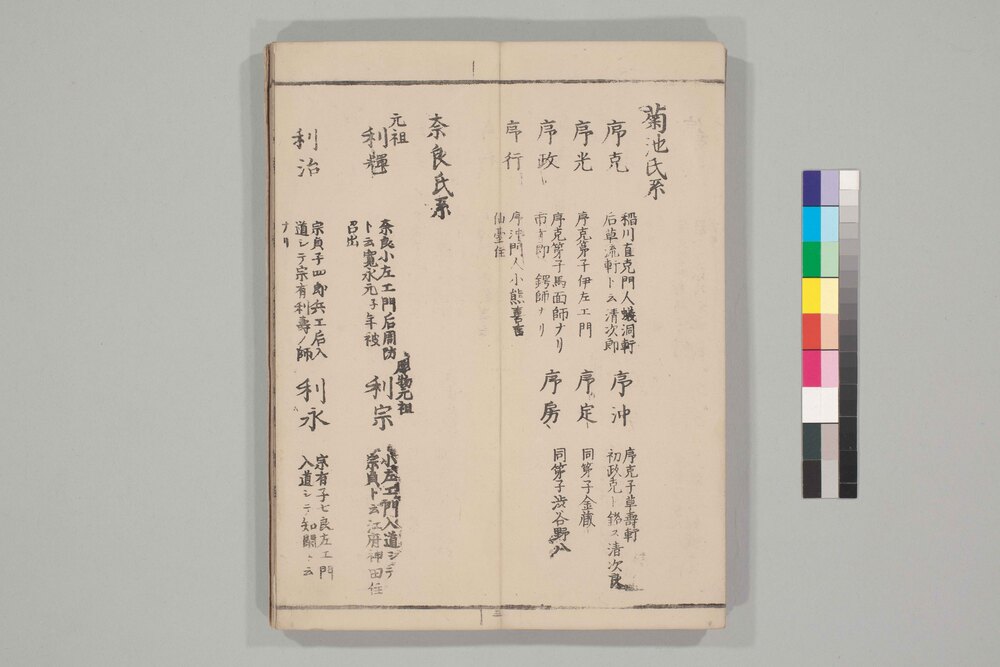 菊池氏系
序克
稲川直克門人蟻洞軒
后草流軒ト云清次郎
序沖
序克子草壽軒
初政克ト銘ス清次良
序光
序克弟子伊左エ門
序定
同弟子金蔵
序政
序克弟子馬面師ナリ
市才即鍔師ナリ
序房
同弟子渋谷野八
序行
序沖門人小熊喜吉
仙臺住
奈良氏系
元祖
利輝
奈良小左エ門后周防
ト云寛永元子年被
召出
彫物元祖
利宗
小左エ門入道シテ
宗貞ト云江府神田住
利治
宗貞子四郎兵エ后入
道シテ宗有利壽ノ師
ナリ
利永
宗有子七良左エ門
入道シテ知閑ト云
三